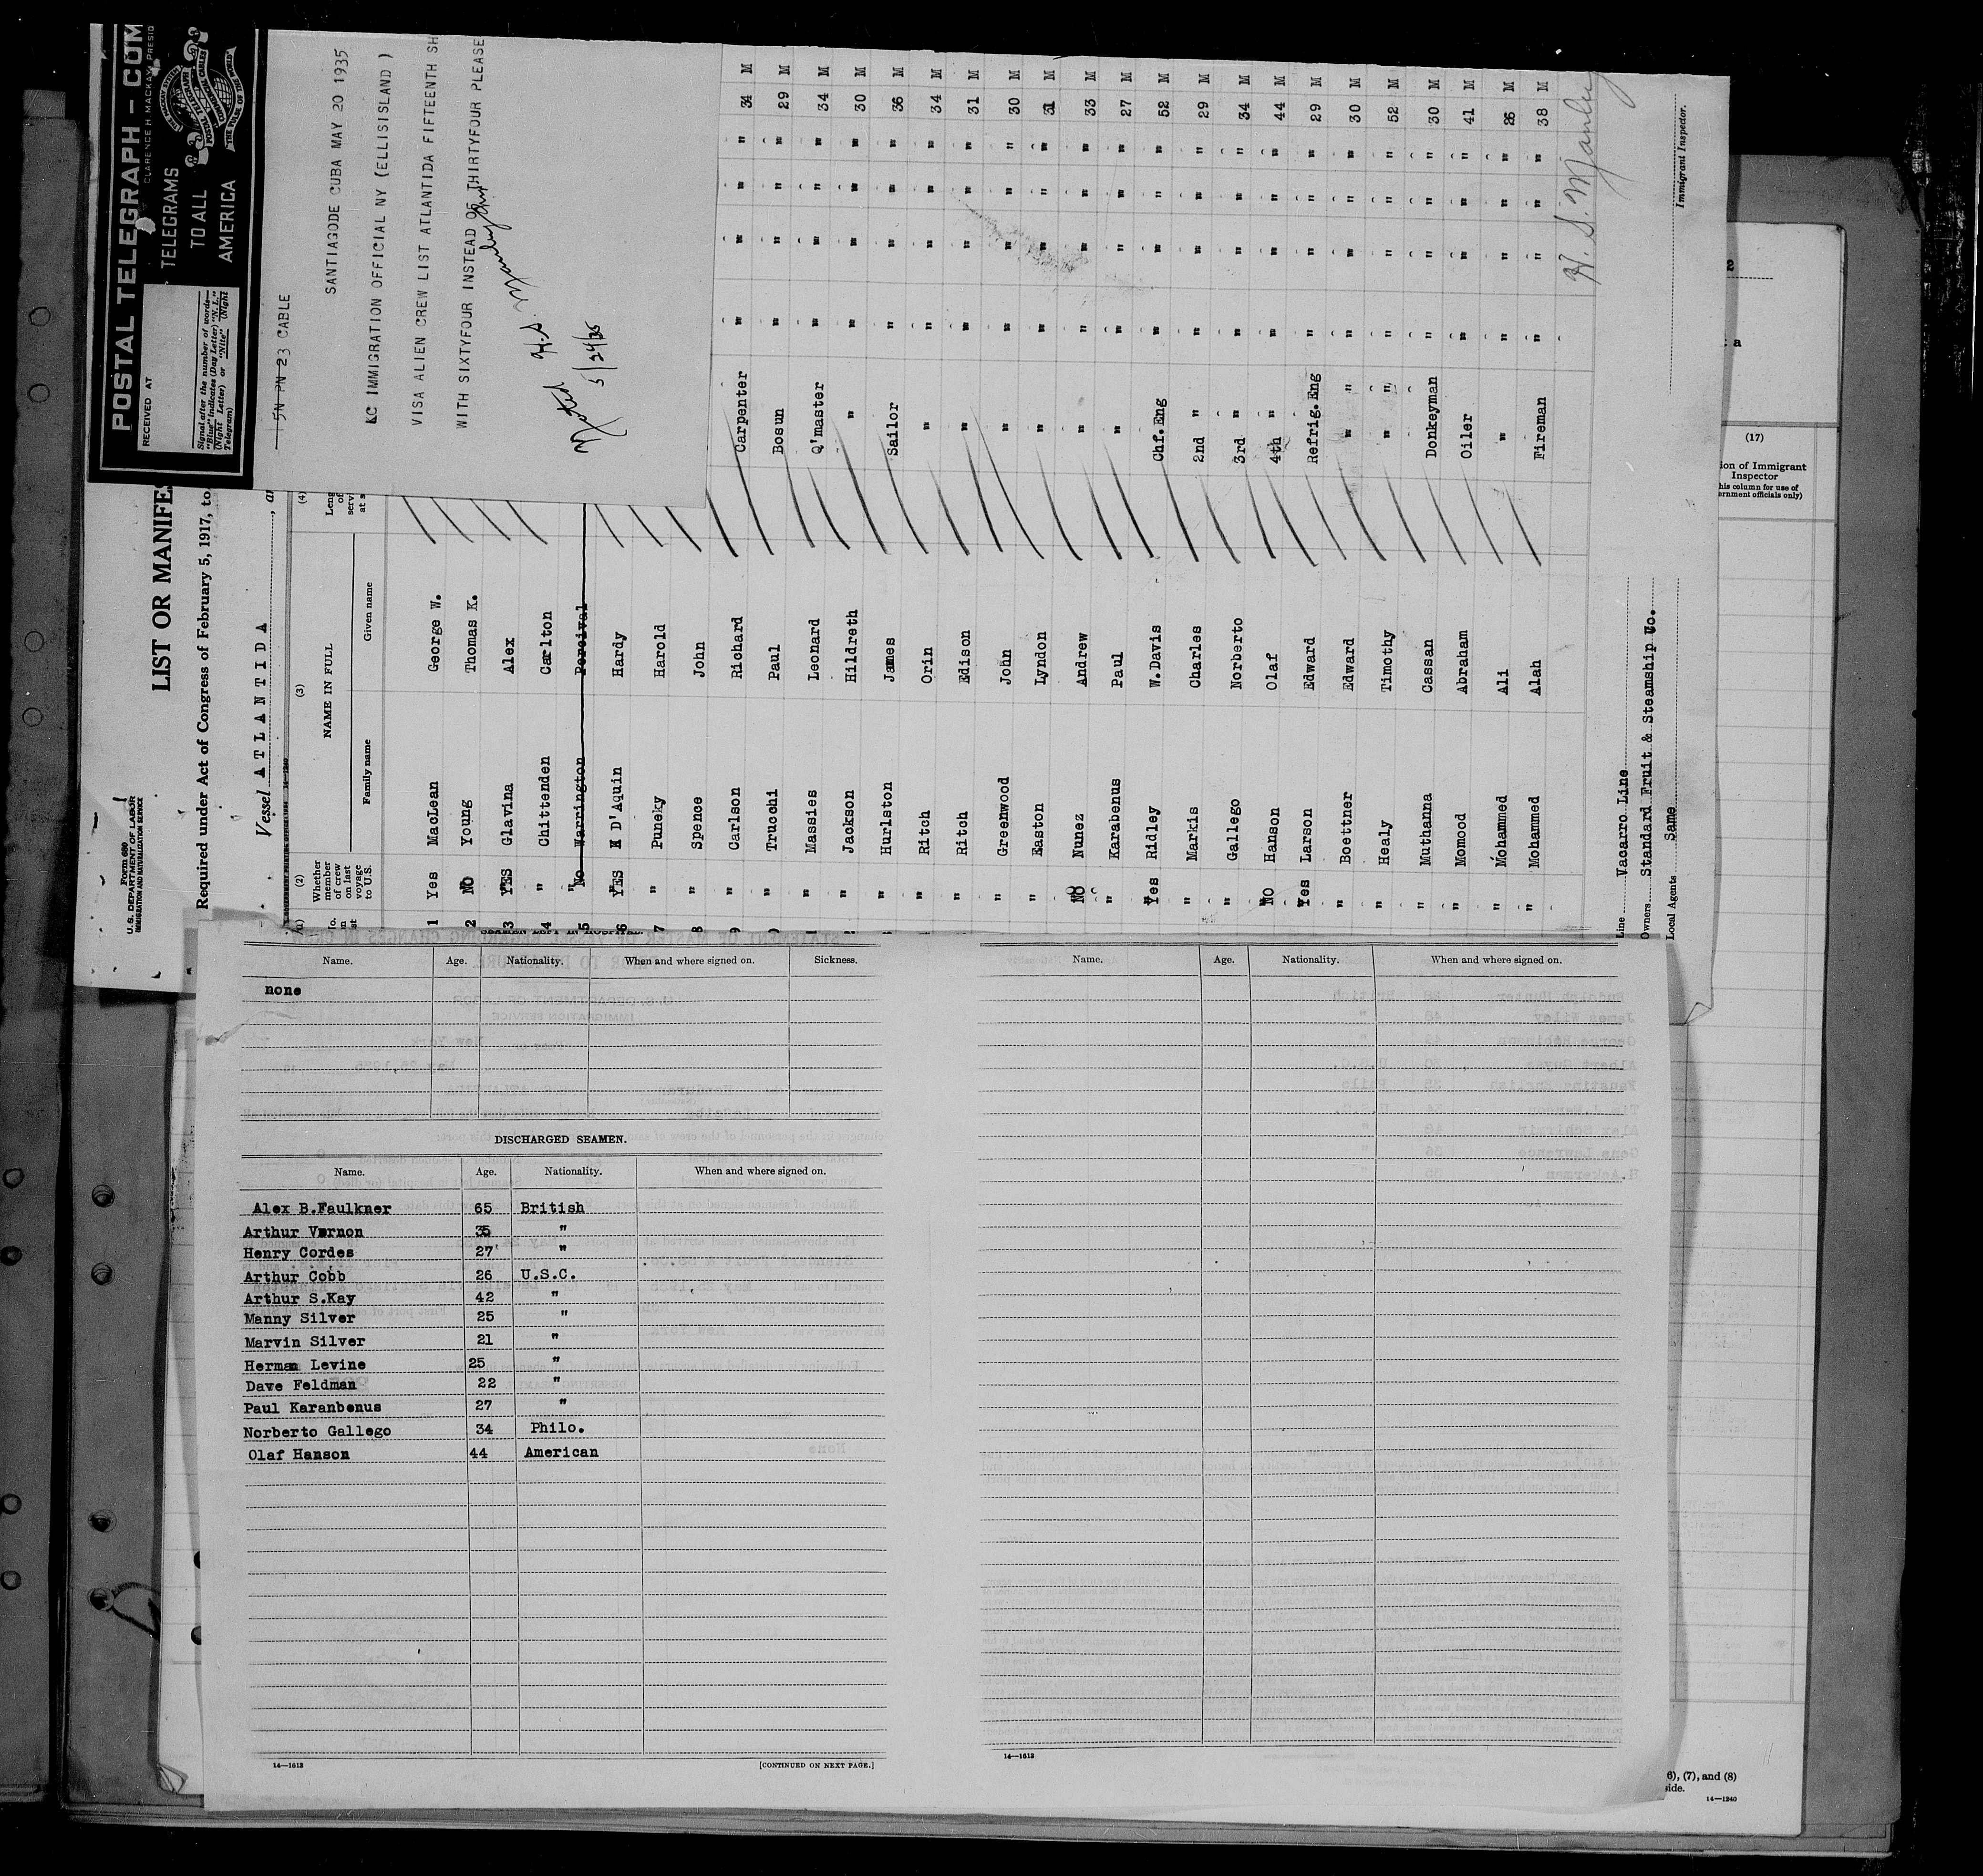 POSTAL TELEGRAPH - COM
CLARENCE H. MACKAY, PRESID
TELEGRAMS
TO ALL
AMERICA
THE VOICE OF THE WORLD
RECEIVED AT
Signal after the number of words—
"Blue" indicates (Day Letter) "N.L."
(Night Letter) or "Nite" (Night
Telegram)
5N PN 23 CABLE
SANTIAGODE CUBA MAY 20 1935
LC IMMIGRATION OFFICIAL NY (ELLISISLAND )
VISA ALIEN CREW LIST ATLANTIDA FIFTEENTH SH
WITH SIXTYFOUR INSTEAD OF THIRTYFOUR PLEASE
Noted H.S. Manley
5/24/35
Form 680
U.S. DEPARTMENT OF LABOR
IMMIGRATION AND NATURALIZATION SERVICE
LIST OR MANIFES
Required under Act of Congress of February 5, 1917, to
Vessel ATLANTIDA , ar
(2) (3) (4)
Whether member of crew on last voyage to U.S.
NAME IN FULL
Family name Given name
1 Yes MacLean George W.
2 NO Young Thomas K.
3 YES Glavina Alex
4 " Chittenden Carlton
5 No Warrington Percival
6 YES D'Aquin Hardy
7 " Puneky Harold
8 " Spence John
9 " Carlson Richard Carpenter " " " " 34 M
0 " Trucchi Paul Bosun " " " " 29 M
1 " Massies Leonard Q'master " " " " 34 M
2 " Jackson Hildreth " " " " " 30 M
" Hurlston James Sailor " " " " 36 M
" Ritch Orin " " " " " 34 M
" Ritch Edison " " " " " 31 M
" Greenwood John " " " " " 30 M
" Easton Lyndon " " " " " 31 M
NO Nunez Andrew " " " " " 33 M
" Karabenus Paul " " " " " 27 M
Yes Ridley W. Davis Chf. Eng " " " " 52 M
" Markis Charles 2nd " " " " " 29 M
" Gallego Norberto 3rd " " " " " 34 M
NO Hanson Olaf 4th " " " " " 44 M
Yes Larson Edward Refrig. Eng " " " " 29 M
" Boettner Edward " " " " " " 30 M
" Healy Timothy " " " " " " 52 M
" Muthanna Cassan Donkeyman " " " " 30 M
" Momood Abraham Oiler " " " " 41 M
" Mohammed Ali " " " " " 26 M
" Mohammed Alah Fireman " " " " 38 M
H. S. Manley
Immigrant Inspector.
Line Vacarro Line
Owners Standard Fruit & Steamship Co.
Local Agents Same
(17)
ion of Immigrant
Inspector
his column for use of
ernment officials only)
Name. Age. Nationality. When and where signed on. Sickness.
none
DISCHARGED SEAMEN.
Name. Age. Nationality. When and where signed on.
Alex B.Faulkner 65 British
Arthur Vernon 35 "
Henry Cordes 27 "
Arthur Cobb 26 U.S.C.
Arthur S.Kay 42 "
Manny Silver 25 "
Marvin Silver 21 "
Herman Levine 25 "
Dave Feldman 22 "
Paul Karanbenus 27 "
Norberto Gallego 34 Philo.
Olaf Hanson 44 American
14—1613
[CONTINUED ON NEXT PAGE.]
Name. Age. Nationality. When and where signed on.
14—1613
6), (7), and (8)
side.
14—1240